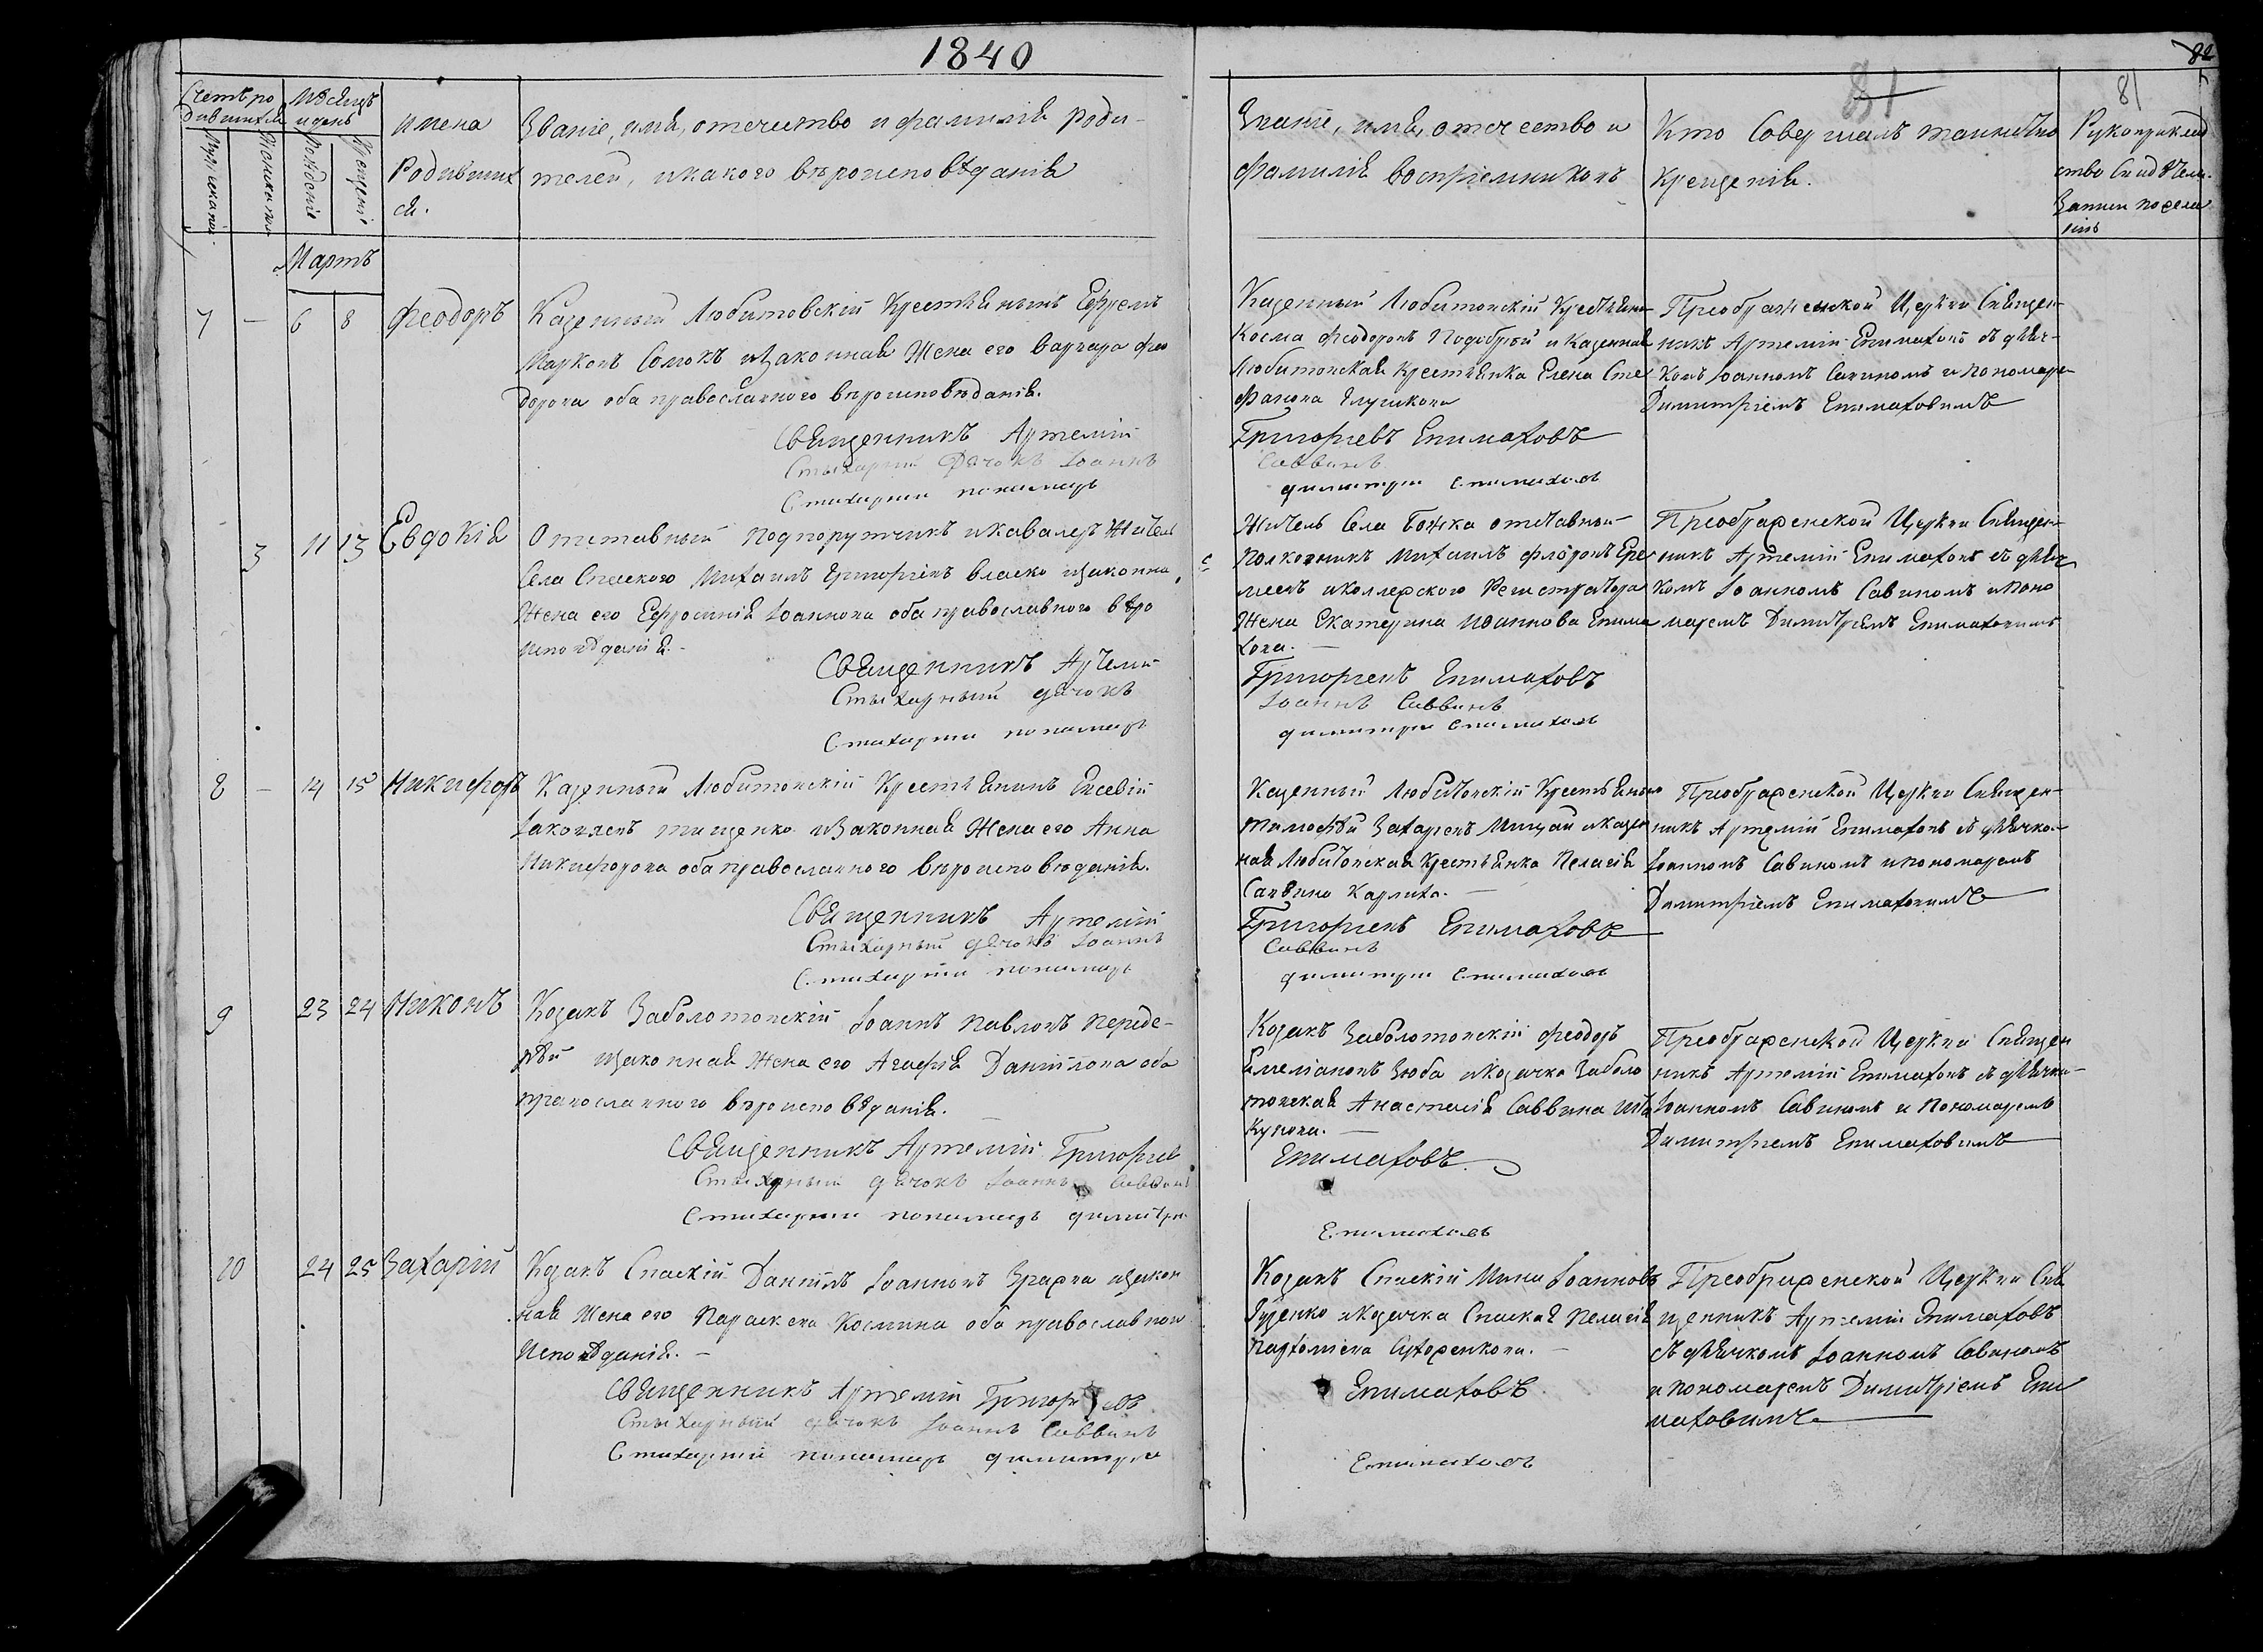 1840
82
81
81
Счетъ ро
дившихся
Мѣсяцъ
и день
Рожденіе
Крещеніе
имена
Родивших
ся.
Званіе, имя, отечество и фамилія роди-
телей, и какого вѣроисповѣданія
Званіе, имя, отечество и
фамилія воспріемниковъ
Кто Совершалъ таинство
Крещенія.
Рукоприклад
ство Свидѣтел.
Записи по жела
нію
Мартъ
7 — 6 8 Феодоръ
Казенный Любитовскій Крестьянинъ Ефремъ
Марковъ Сомокъ и Законная Жена его Варвара Фео
дорова оба православного вѣроисповѣданія.
Священникъ Артемій
Стыхарный Дячокъ Іоаннъ
Стихарный пономарь
Казенный Любитовскій Крестьянинъ
Косма Феодоровъ и Казенная
Любитовская Крестьянка Елена Сте
фанова
Григорьевъ Епимаховъ
Саввинъ
Димитри Епимаховъ
Преображенской Церкви Священ-
никъ Артемій Епимаховъ съ дяч-
комъ Іоанномъ Савиномъ и Пономаре
Димитріемъ Епимаховимъ
3 11 13 Евдокія
Отставный подпорутчикъ и кавалеръ Житель
Села Спаского Михаилъ Григоріевъ Власко и законна
Жена его Ефросинія Іоаннова оба православного вѣро
исповѣданія.
Священникъ Артемій
Стыхарный дячокъ
Стихарный пономарь
Житель Села Божка отставной
Полковникъ Михаилъ Флоровъ Ере
меевъ и коллежского Регистратора
Жена Екатерина Иоаннова Епима
хова.
Григоріевъ Епимаховъ
Іоаннъ Саввинъ
Димитри Епимаховъ
Преображенской Церкви Священ-
никъ Артемій Епимаховъ съ дяч
комъ Іоанномъ Савиномъ и Поно
маремъ Димитріемъ Епимаховимъ
8 — 14 15 Никифоръ
Казенный Любитовскій Крестьянинъ Евсевій
Іаковлевъ Тищенко и Законная Жена его Анна
Никифорова оба православного вѣроисповѣданія.
Священникъ Артемій
Стыхарный дячокъ Іоаннъ
Стихарный пономарь
Казенный Любитовскій Крестьянинъ
Тимофѣй Захаріевъ Мицай и Казен
ная Любитовская Крестьянка Пелагія
Саввина
Григоріевъ Епимаховъ
Саввинъ
Димитри Епимаховъ
Преображенской Церкви Священ-
никъ Артемій Епимаховъ съ дячко-
Іоанномъ Савиномъ и пономаремъ
Димитріемъ Епимаховимъ
9 23 24 Никонъ
Козакъ Заболотовскій Іоаннъ Павловъ Переде-
рѣй и законная Жена его Агафія Даніилова оба
православного вѣроисповѣданія.
Священникъ Артемій Григорьев
Стыхарный дячокъ Іоаннъ Саввинъ
Стихарный пономарь Димитри
Козакъ Заболотовскій Феодоръ
Емеліановъ Зюба и Козачка Заболо
товская Анастасія Саввина
Епимаховъ
Епимаховъ
Преображенской Церкви Священ
никъ Артемій Епимаховъ съ дячко-
Іоанномъ Савиномъ и Пономаремъ
Димитріемъ Епимаховимъ
10 24 25 Захарій
Козакъ Спаскій Даніилъ Іоанновъ и Закон
ная Жена его Параскева Космина оба православнои
исповѣданія.
Священникъ Артемій Григорьевъ
Стыхарный дячокъ Іоаннъ Саввинъ
Стихарный пономарь Димитри
Козакъ Спаскій Мина Іоанновъ
и Козачка Спаская Пелагія
Епимаховъ
Епимаховъ
Преображенской Церкви Свя
щенникъ Артемій Епимаховъ
съ дячкомъ Іоанномъ Савиномъ
и пономаремъ Димитріемъ Епи
маховимъ